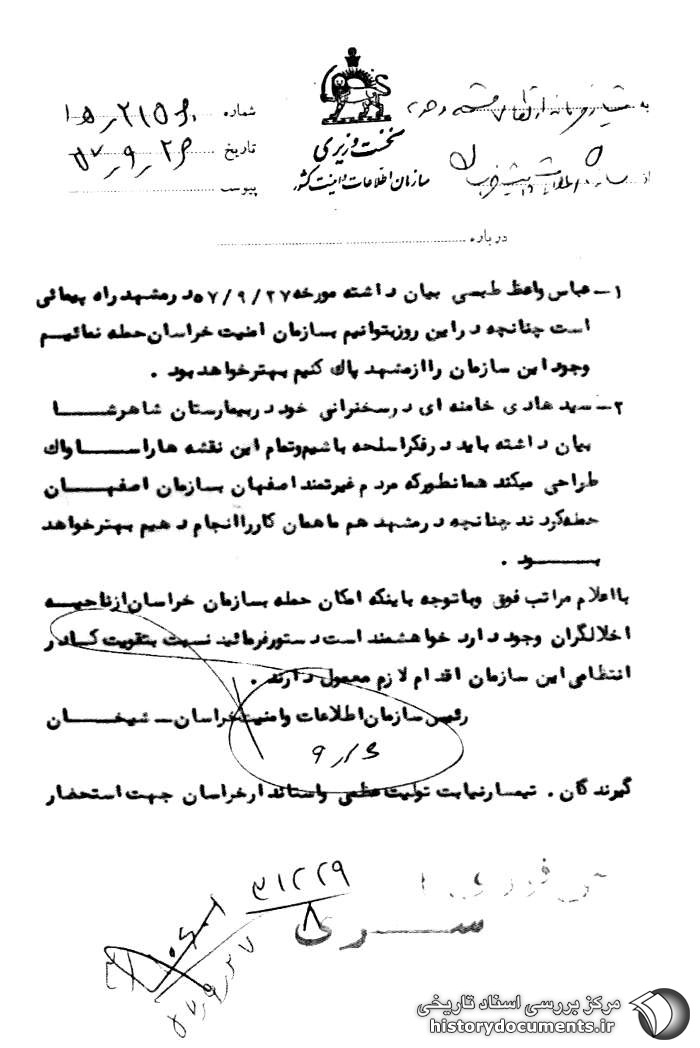 شماره ۱۵٫۲۱۵۶۰
تاریخ ۵۷٫۹٫۲۶
پیوست
نخست وزیری
سازمان اطلاعات و امنیت کشور
به
از
درباره
۱ــ عباس واعظ طبسی بیان داشته مورخه ۵۷/۹/۲۷ در مشهد راه پیمائی
است چنانچه در این روز بتوانیم بسازمان امنیت خراسان حمله نمائیم
وجود این سازمان را از مشهد پاک کنیم بهتر خواهد بود .
۲ــ سید هادی خامنه ای در سخنرانی خود در بیمارستان شاهرضا
بیان داشته باید در فکر اسلحه باشیم و تمام این نقشه ها را ساواک
طراحی میکند همانطور که مردم غیرتمند اصفهان بسازمان اصفهان
حمله کردند چنانچه در مشهد هم ما همان کار را انجام دهیم بهتر خواهد
بود .
با اعلام مراتب فوق و با توجه باینکه امکان حمله بسازمان خراسان از ناحیه
اخلالگران وجود دارد خواهشمند است دستور فرمائید نسبت بتقویت کادر
انتظامی این سازمان اقدام لازم معمول دارند .
رئیس سازمان اطلاعات و امنیت خراسان ــ شیخان
گیرندگان . تیمسار نیابت تولیت عظمی و استاندار خراسان جهت استحضار
۳۱۲۲۹
۸
سری
۵۷٫۹٫۲۷
مرکز بررسی اسناد تاریخی
historydocuments.ir